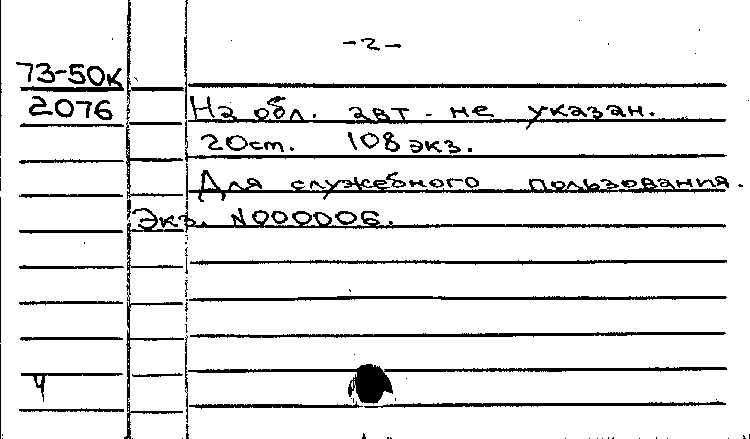 -2-
73-50к
2076 На обл. авт. не указан.
20 см. 108 экз.
Для служебного пользования.
Экз. N000006.
Ч